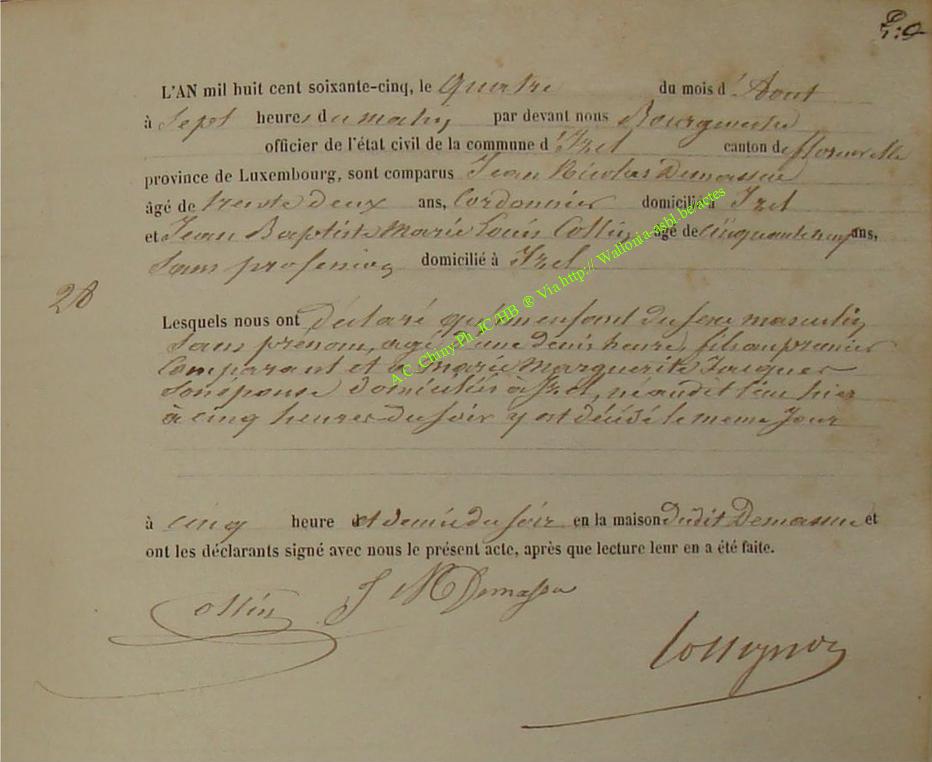 L'AN mil huit cent soixante-cinq, le quatre du mois d'Aout
à sept heures du matin par devant nous Bourgmestre
officier de l'état civil de la commune d'Izel canton de florenville
province de Luxembourg, sont comparus Jean Nicolas Demasse
âgé de trente deux ans, Cordonnier domicilié à Izel
et Jean Baptiste Marie Louis Collin âgé de cinquante neuf ans,
sans profession domicilié à Izel
28
Lesquels nous ont déclaré qu'un enfant du sexe masculin
sans prenom, agé d'une demie heure, fils au premier
Comparant et de Marie Marguerite Jacques
son épouse domiciliés à Izel, né audit lieu hier
à cinq heures du soir y est décédé le meme jour
à cinq heure et demie du soir en la maison dudit Demasse et
ont les déclarants signé avec nous le présent acte, après que lecture leur en a été faite.
Collin J N Demasse
Rossignon
A.C. Chiny Ph JC/HB ® Via http:// Wallonia-asbl be/actes